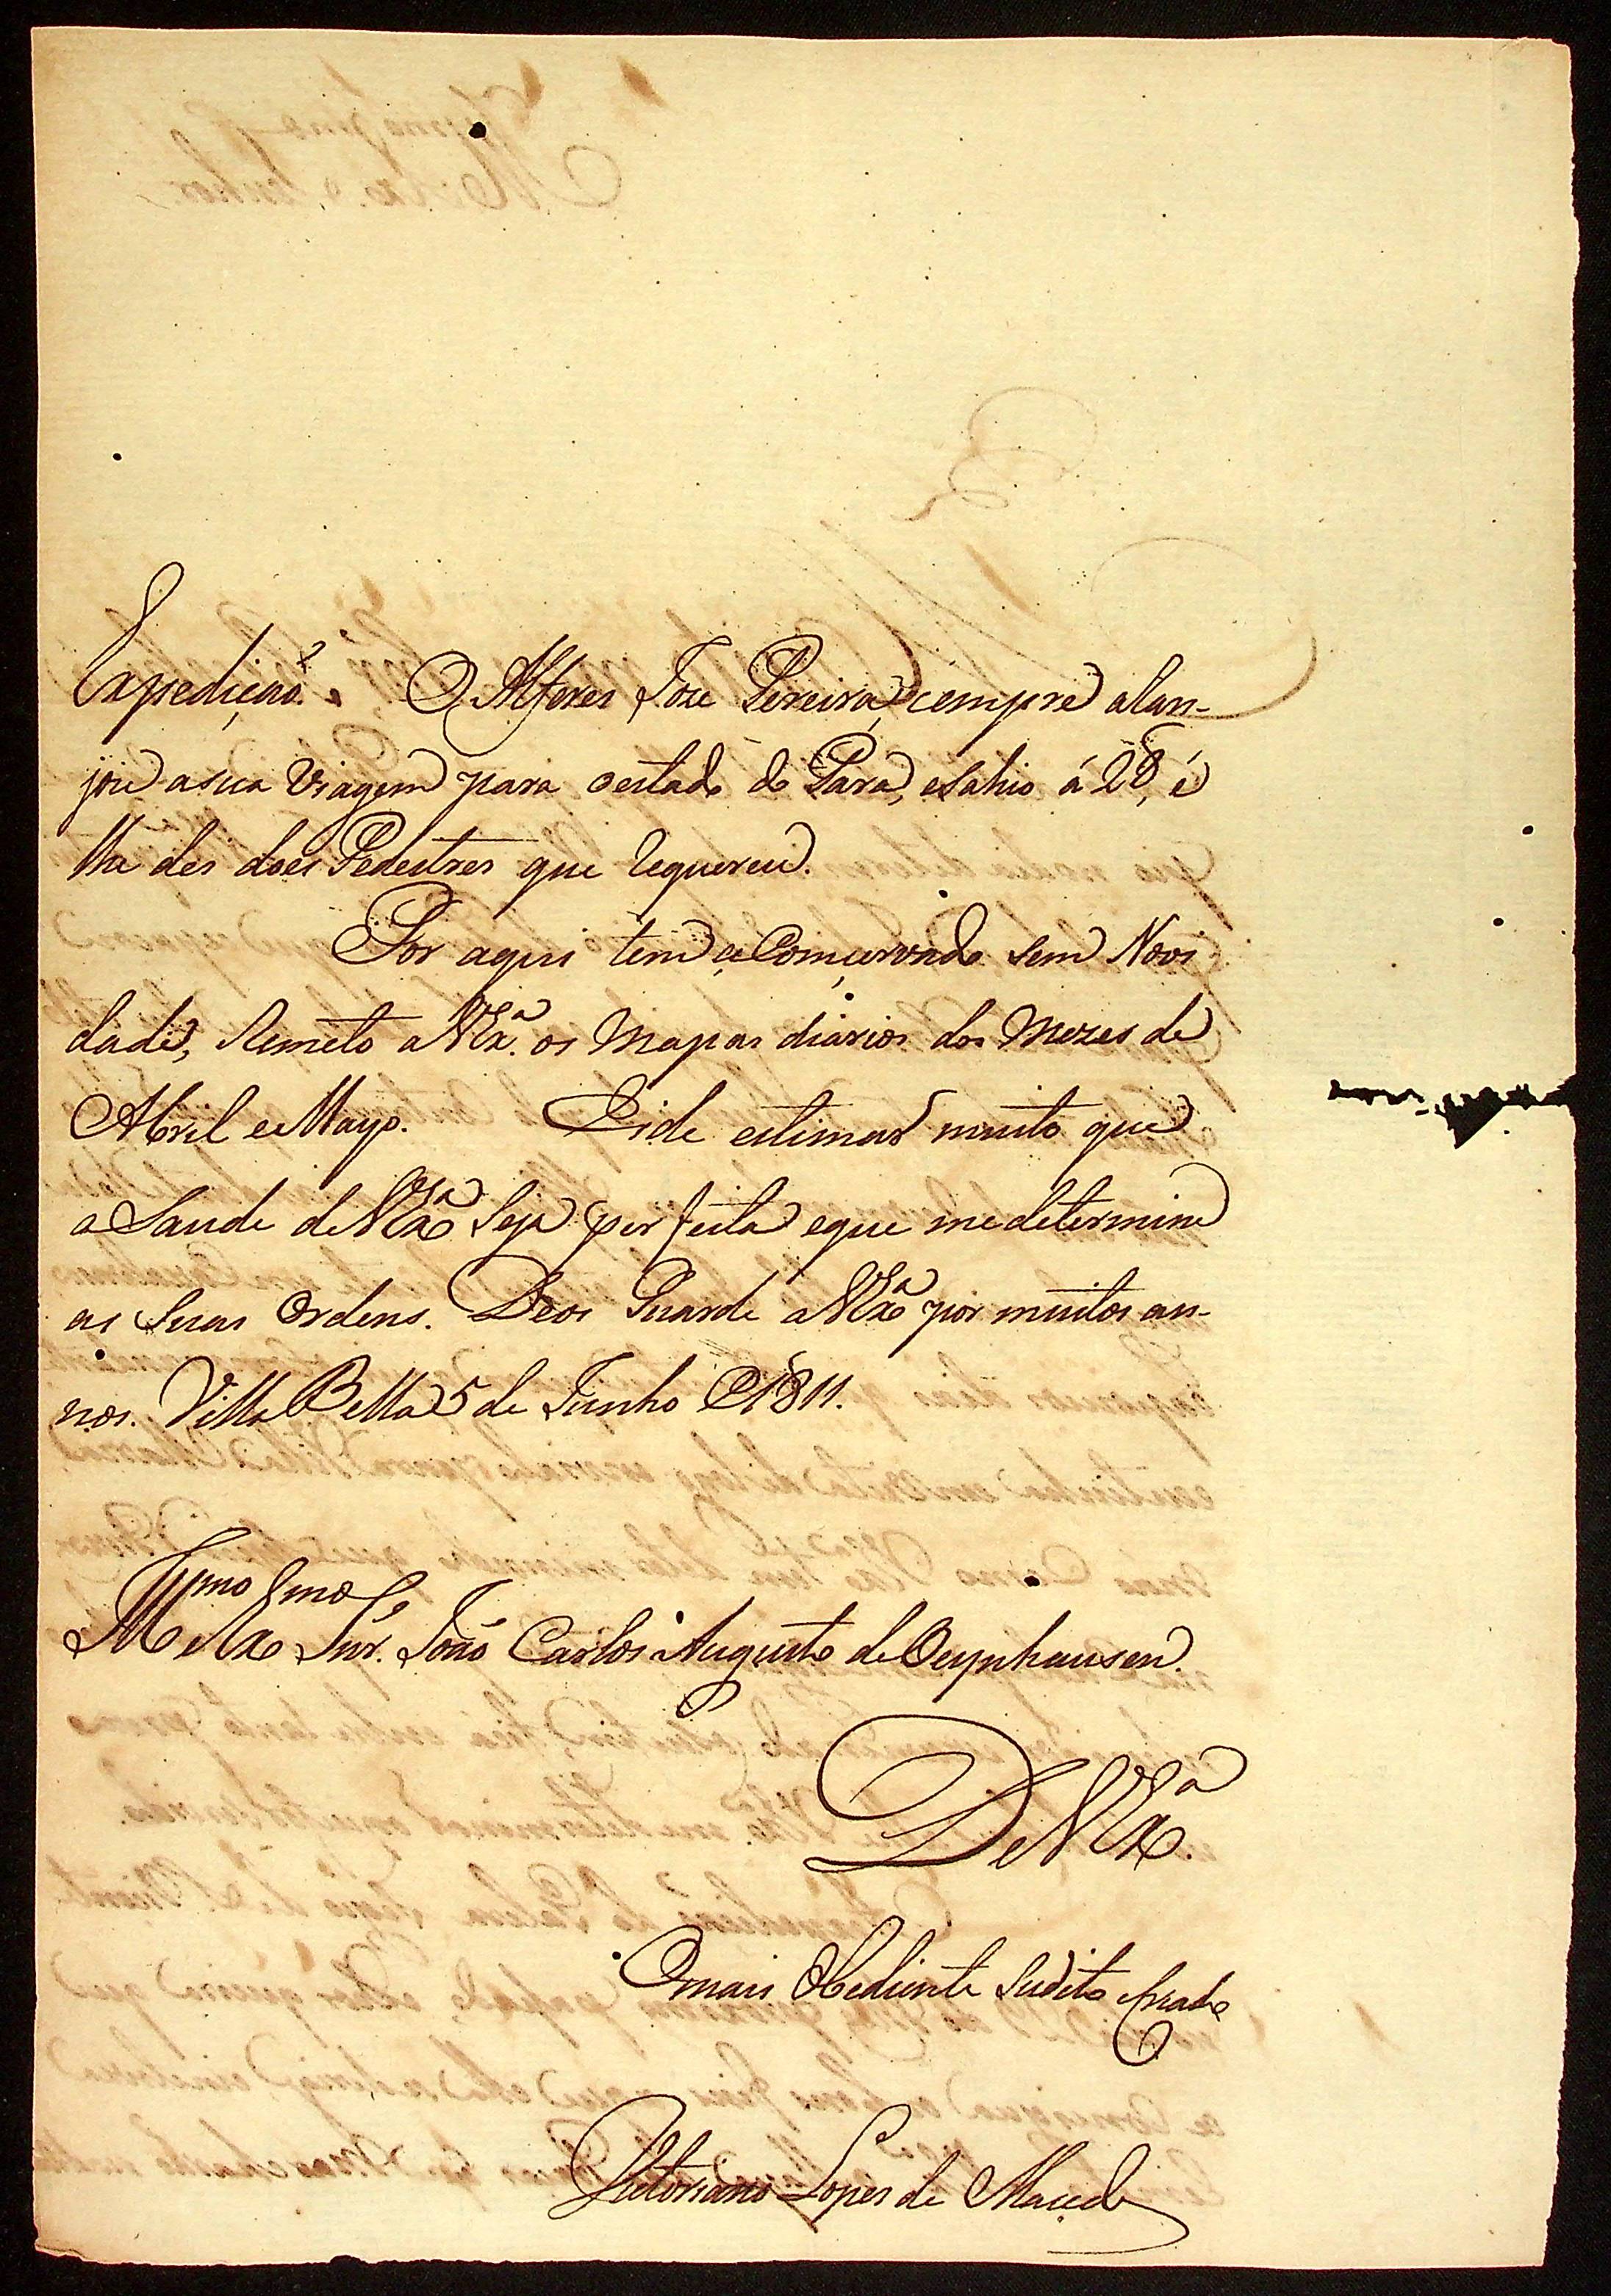 Expedição. O Alferes Joze Pereira, cempre alan-
jou a sua Viagem para o estado do Pará, e Sahio á 28, é
lhe dei does Pedestres que Requereu.
Por aqui tem ce Comcervado Sem Novi
dade, Remeto a VExª. os Mapas diarios dos Mezes de
Abril e Mayo. Eide estimar muito que
a Saude de VExª Seja perfeita e que me determine
as Suas Ordens. Deos Guarde a VExª por muitos an-
nos. Villa Bella 5 de Junho 1811.
Illmo Exmo Snr. João Carlos Augusto de Oeynhausen.
De VExª.
O mais Obediente Sudito Criado
Victoriano Lopes de Macedo